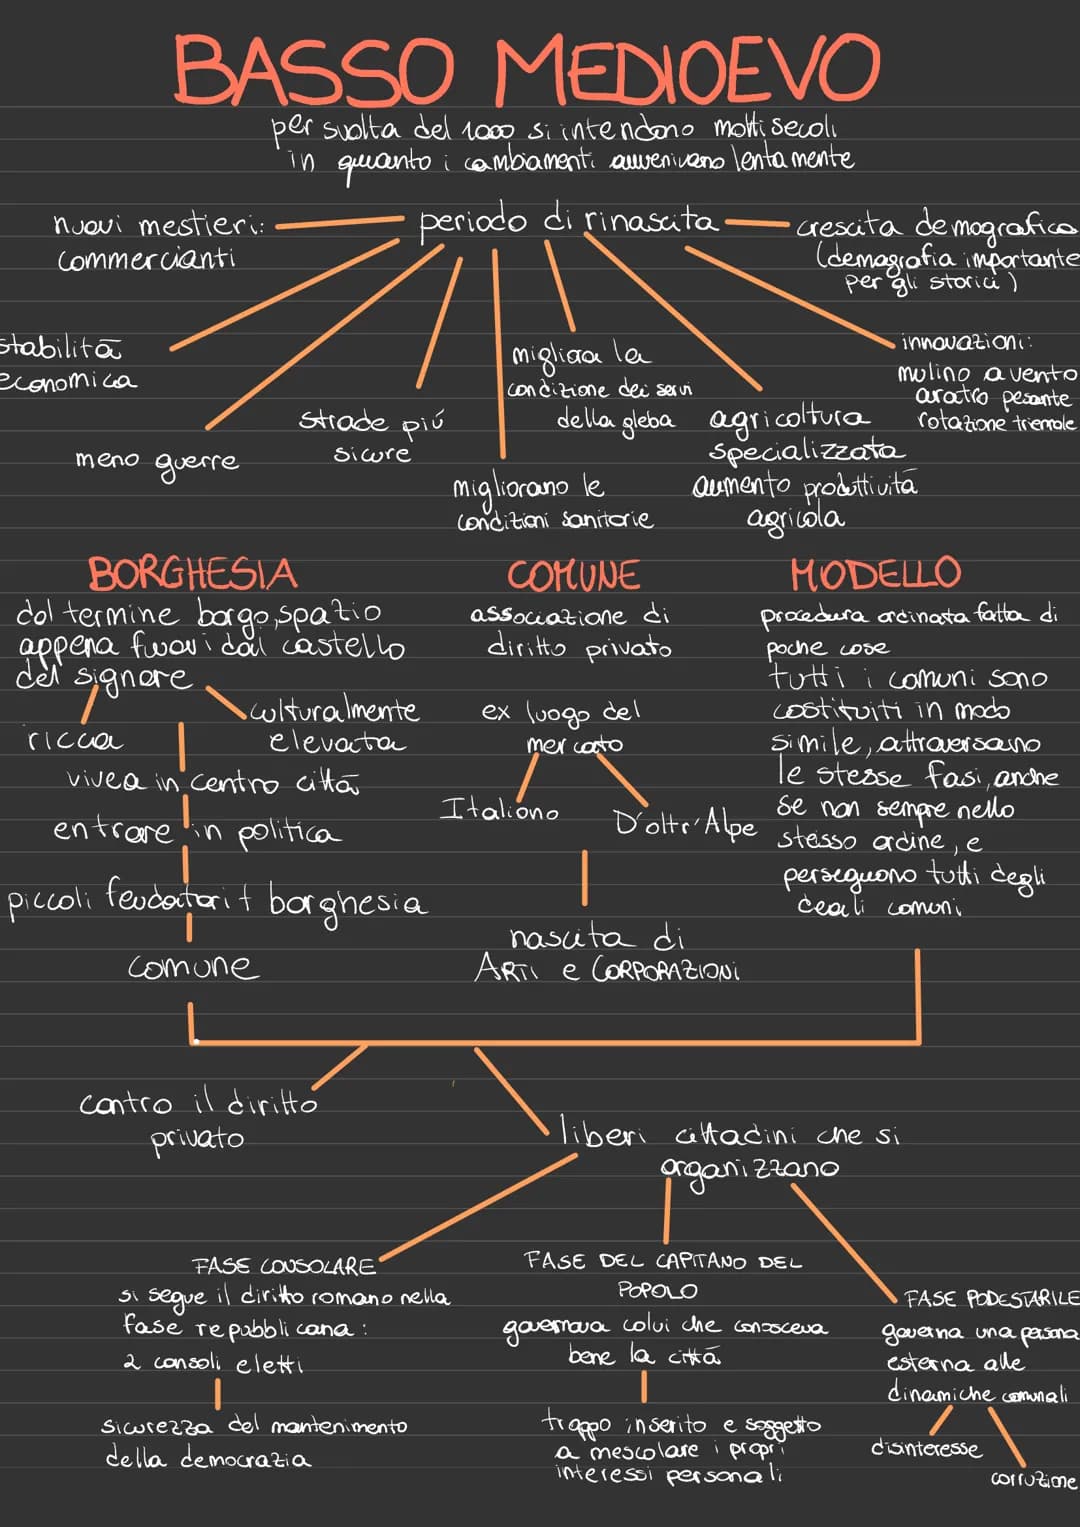 BASSO MEDIOEVO
per svolta del 1000 si intendono molti secoli
in quanto i cambiamenti avvenivano lentamente
periodo di rinascita
nuovi mestieri:
commercianti
crescita demografica
(demografia importante
per gli storici)
stabilità
economica
meno guerre
strade più
sicure
migliorano le
condizioni sanitarie
migliora la
condizione dei servi
della gleba
agricoltura
specializzata
aumento produttività
agricola
innovazioni:
mulino a vento
aratro pesante
rotazione triennale
BORGHESIA
dal termine borgo, spazio
appena fuori dal castello
del signore
ricca
culturalmente
elevata
vivea in centro città
entrare in politica
piccoli feudatari + borghesia
comune
COMUNE
associazione di
diritto privato
ex luogo del
mercato
Italiano
D'oltr'Alpe
nascita di
ARTI e CORPORAZIONI
MODELLO
procedura ordinata fatta di
poche cose
tutti i comuni sono
costituiti in modo
simile, attraversano
le stesse fasi, anche
se non sempre nello
stesso ordine, e
perseguono tutti degli
ideali comuni
contro il diritto
privato
liberi cittadini che si
organizzano
FASE CONSOLARE
si segue il diritto romano nella
fase repubblicana:
2 consoli eletti
sicurezza del mantenimento
della democrazia
FASE DEL CAPITANO DEL
POPOLO
governava colui che conosceva
bene la città
troppo inserito e soggetto
a mescolare i propri
interessi personali
FASE PODESTARILE
governa una persona
esterna alle
dinamiche comunali
disinteresse
corruzione